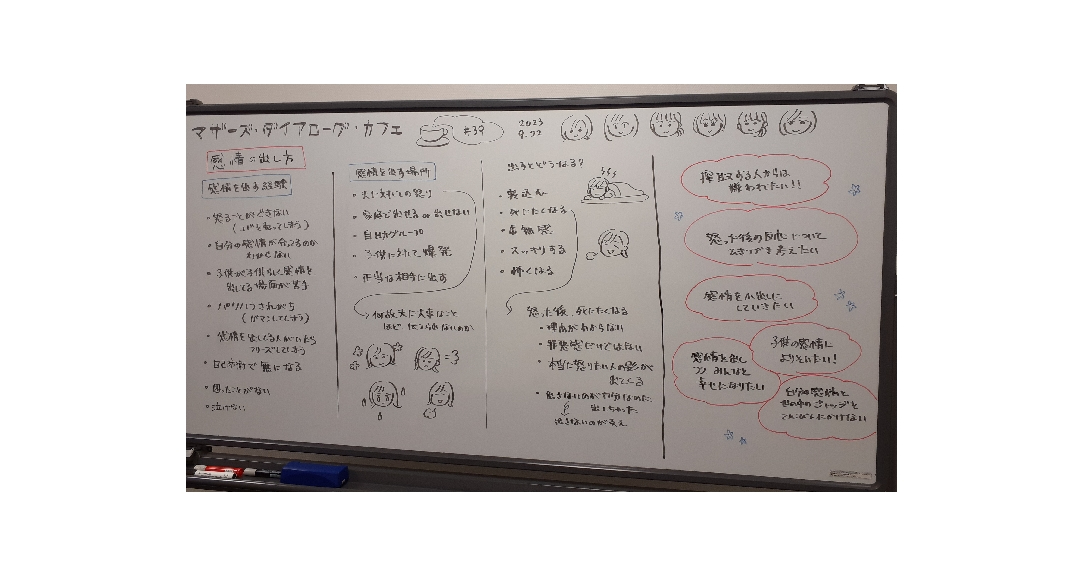 マザーズ・ダイアローグ・カフェ
#39
2023
9.22
感情の出し方
感情を出す経験
・怒ることができない
・自分の感情が合ってるのか
わからない
・子供が子供らしく感情を
出してる場面が苦手
(ガマンしてしまう)
・感情を出してくる人がいたら
フリーズしてしまう
・自己分析で無になる
・怒ったことがない
・泣けない
感情を出す場所
・夫に対しての怒り
・家庭で出せる or 出せない
・自助グループ
・子供に対して爆発
・正当な相手に出す
何故夫に大事なこと
ほど伝えられないのか
出すとどうなる?
・寝込む
・死にたくなる
・罪悪感
・スッキリする
・怖くなる
怒った後、死にたくなる
・理由がわからない
・罪悪感だけではない
・本当に怒りたい人の影が
出てくる
・泣きないのが
搾取する人からは
嫌われたい!!
怒った後の自他について
ひきつづき考えたい
感情を小出しに
していきたい
子供の感情に
よりそいたい!
感情を出し
つつ みんなと
幸せになりたい
自分の感情を
世の中のジャッジと
てんびんにかけない